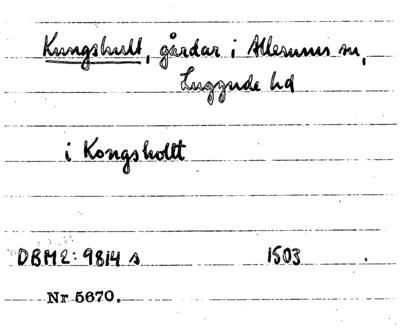 Kungshult, gårdar i Allerums sn,
Luggude hd
i Kongshollt
DBM2: 9814 s 1503 .
Nr 5670.